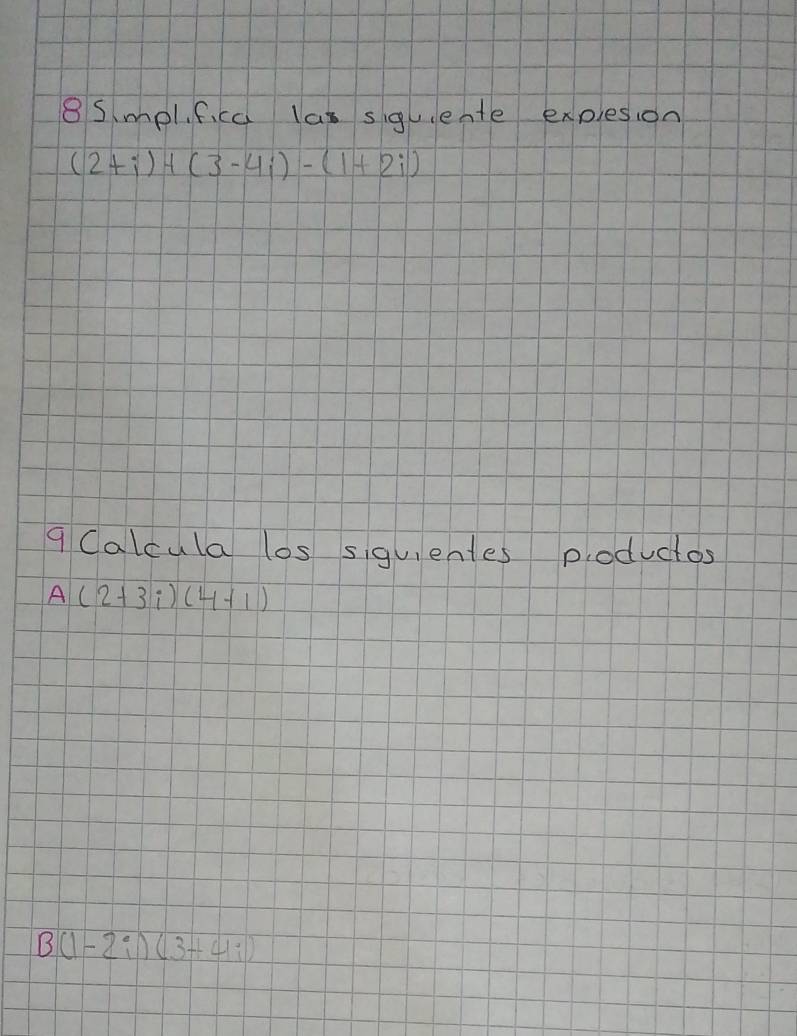 8 Simplifica las siguiente expresion
(2+i)+(3-4i)-(1+2i)
9 Calcula los siguientes productos
A (2+3i)(4+i)
B (1-2i)(3+4i)